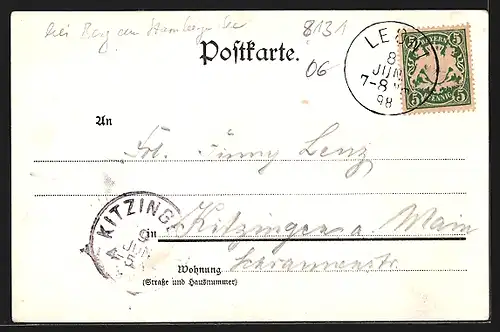 bei Berg am Starnberger See
8131
06
Postkarte.
LEONI
8
JUN
7-8
98
BAYERN
5 5
5 PFENNIG 5
An
Frl. Fanny Lenz
KITZING
9
JUN
in Kitzingen a. Main
Wohnung Schrannenstr
(Straße und Hausnummer)